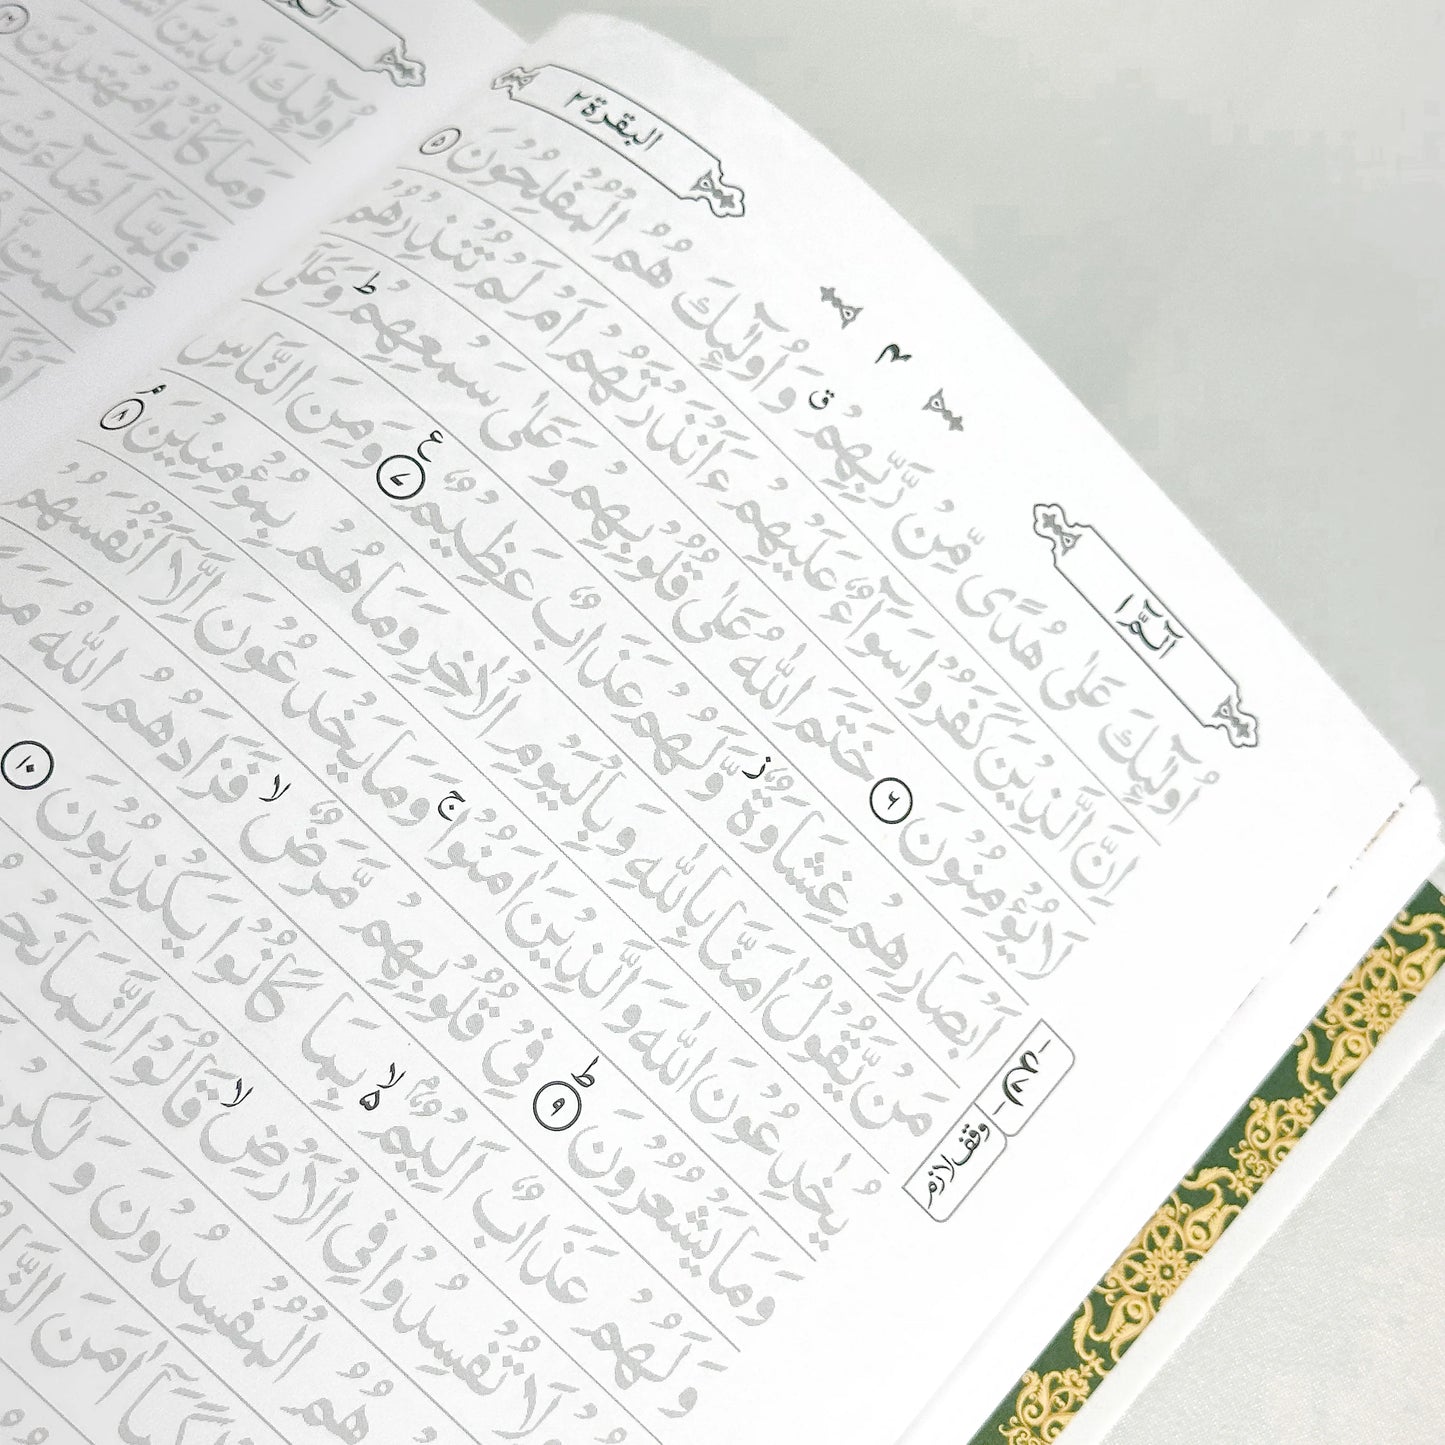 البقرة ٢
الٓمّٓ ١
٢
اُولٰٓئِكَ عَلٰى هُدًى مِّنْ رَّبِّهِمْ ق وَاُولٰٓئِكَ هُمُ الْمُفْلِحُوْنَ ٥
اِنَّ الَّذِيْنَ كَفَرُوْا سَوَآءٌ عَلَيْهِمْ ءَاَنْذَرْتَهُمْ اَمْ لَمْ تُنْذِرْهُمْ
لَا يُؤْمِنُوْنَ ٦ خَتَمَ اللّٰهُ عَلٰى قُلُوْبِهِمْ وَعَلٰى سَمْعِهِمْ ط وَعَلٰٓى
اَبْصَارِهِمْ غِشَاوَةٌ ز وَّلَهُمْ عَذَابٌ عَظِيْمٌ ٧ ع وَمِنَ النَّاسِ
مَنْ يَّقُوْلُ اٰمَنَّا بِاللّٰهِ وَبِالْيَوْمِ الْاٰخِرِ وَمَا هُمْ بِمُؤْمِنِيْنَ ٨ م
يُخٰدِعُوْنَ اللّٰهَ وَالَّذِيْنَ اٰمَنُوْا ج وَمَا يَخْدَعُوْنَ اِلَّآ اَنْفُسَهُمْ
وَمَا يَشْعُرُوْنَ ٩ ط فِيْ قُلُوْبِهِمْ مَّرَضٌ لا فَزَادَهُمُ اللّٰهُ
وَلَهُمْ عَذَابٌ اَلِيْمٌ ۵ لا بِمَا كَانُوْا يَكْذِبُوْنَ ١٠
لَا تُفْسِدُوْا فِي الْاَرْضِ لا قَالُوْٓا اِنَّمَا
هُمُ الْمُفْسِدُوْنَ
اٰمَنَ
وقف لازم
اُولٰٓئِكَ الَّذِيْنَ
وَمَا كَانُوْا مُهْتَدِيْنَ
فَلَمَّآ اَضَآءَتْ
ظُلُمٰتٍ